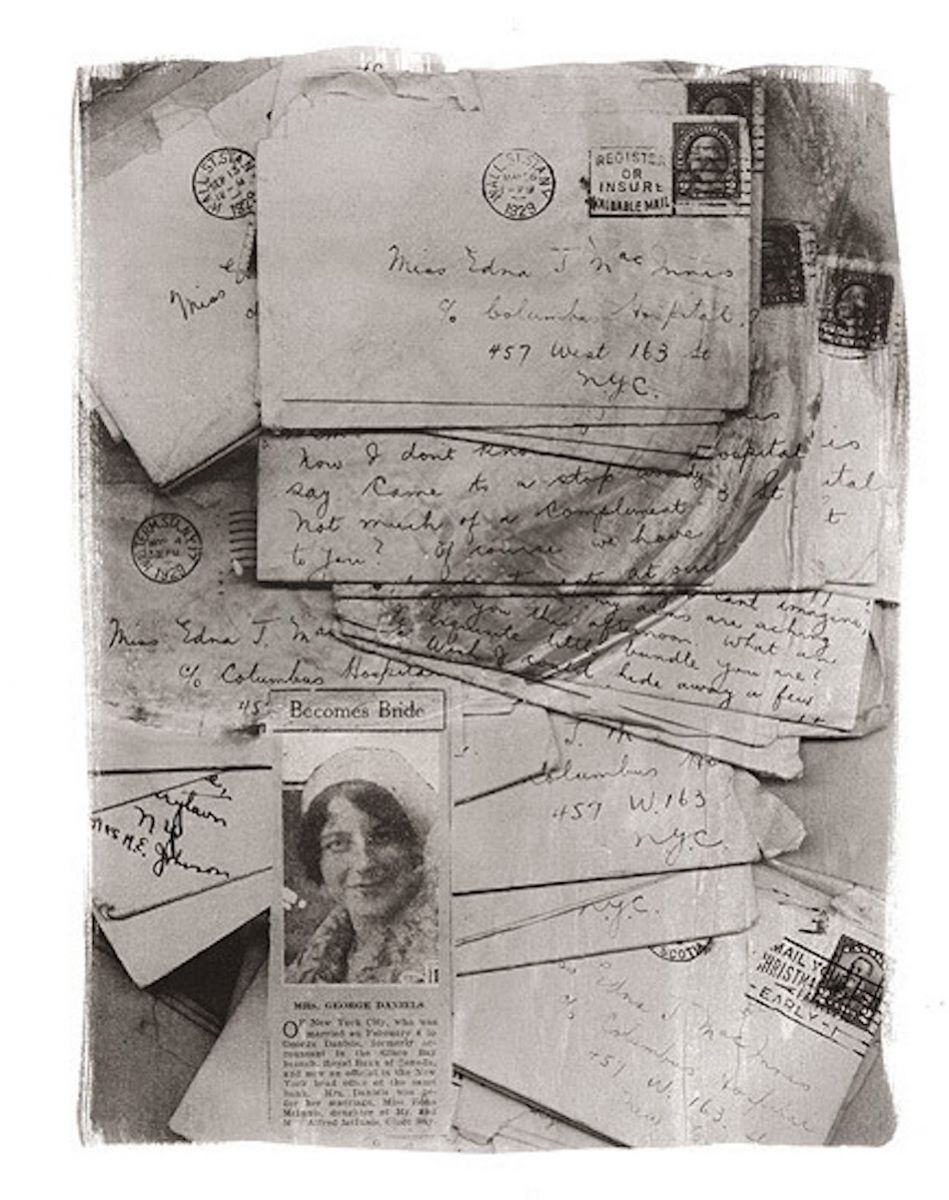 WALL ST. STA. N.Y.
SEP 13
1929
Miss
WALL ST. STA. N.Y.
1929
REGISTER
OR
INSURE
VALUABLE MAIL
Miss Edna J MacInnis
c/o Columbus Hospital
457 West 163 St
N.Y.C.
Now I dont
say came to a stop
Not much of a compliment
to you? Of course we have
at our
Hospital
3 St
is
ital
t
cant imagine,
you this afternoon my arms are aching
exquisite little bundle you are!
Wish I could hide away a few
what an
TERM. STA. N.Y.
4
1929
Miss Edna J. Mac
c/o Columbus Hospital
45
N.Y.
Mrs H.E. Johnson
Columbus
457 W. 163
N.Y.C.
N.Y.C.
SCOTIA
MAIL YOUR
CHRISTMAS
EARLY
Edna J MacInnis
c/o Columbus Hospital
457 W. 163 St
Becomes Bride
MRS. GEORGE DANIELS
OF New York City, who was
married on February 4 to
George Daniels, formerly ac-
countant in the Glace Bay
branch, Royal Bank of Canada,
and now an official in the New
York head office of the same
bank. Mrs. Daniels was be-
for her marriage, Miss Edna
McInnis, daughter of Mr. and
M Alfred McInnis, Glace Bay.